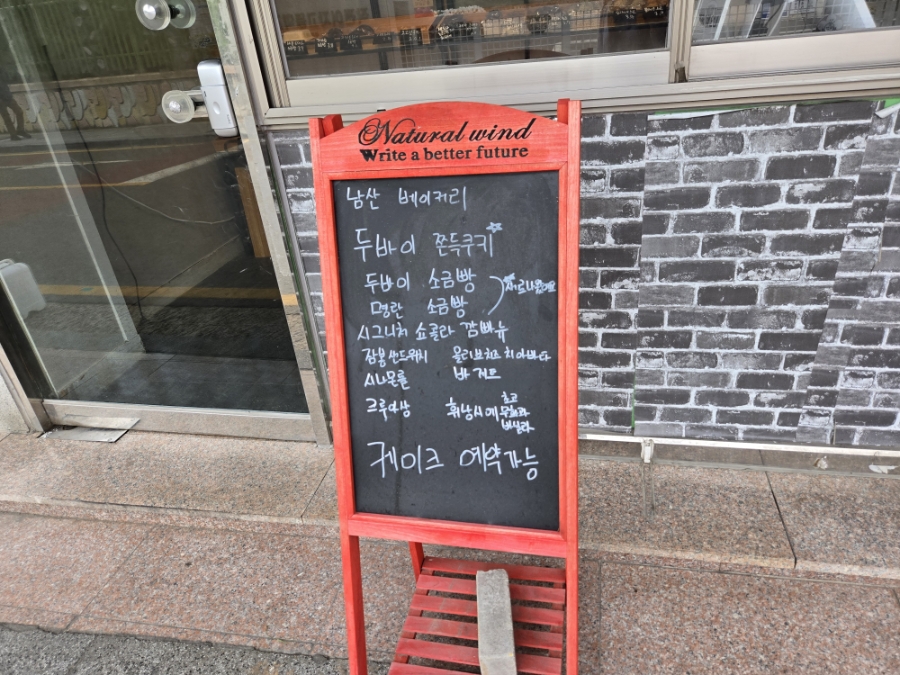 Natural wind
Write a better future
남산 베이커리
두바이 쫀득쿠키
두바이 소금빵
새로나왔어요
명란 소금빵
시그니처 쇼콜라 깜빠뉴
잠봉샌드위치 올리브치즈 치아바타
시나몬롤 바게트
크루아상 휘낭시에 초코
무화과
바닐라
케이크 예약가능